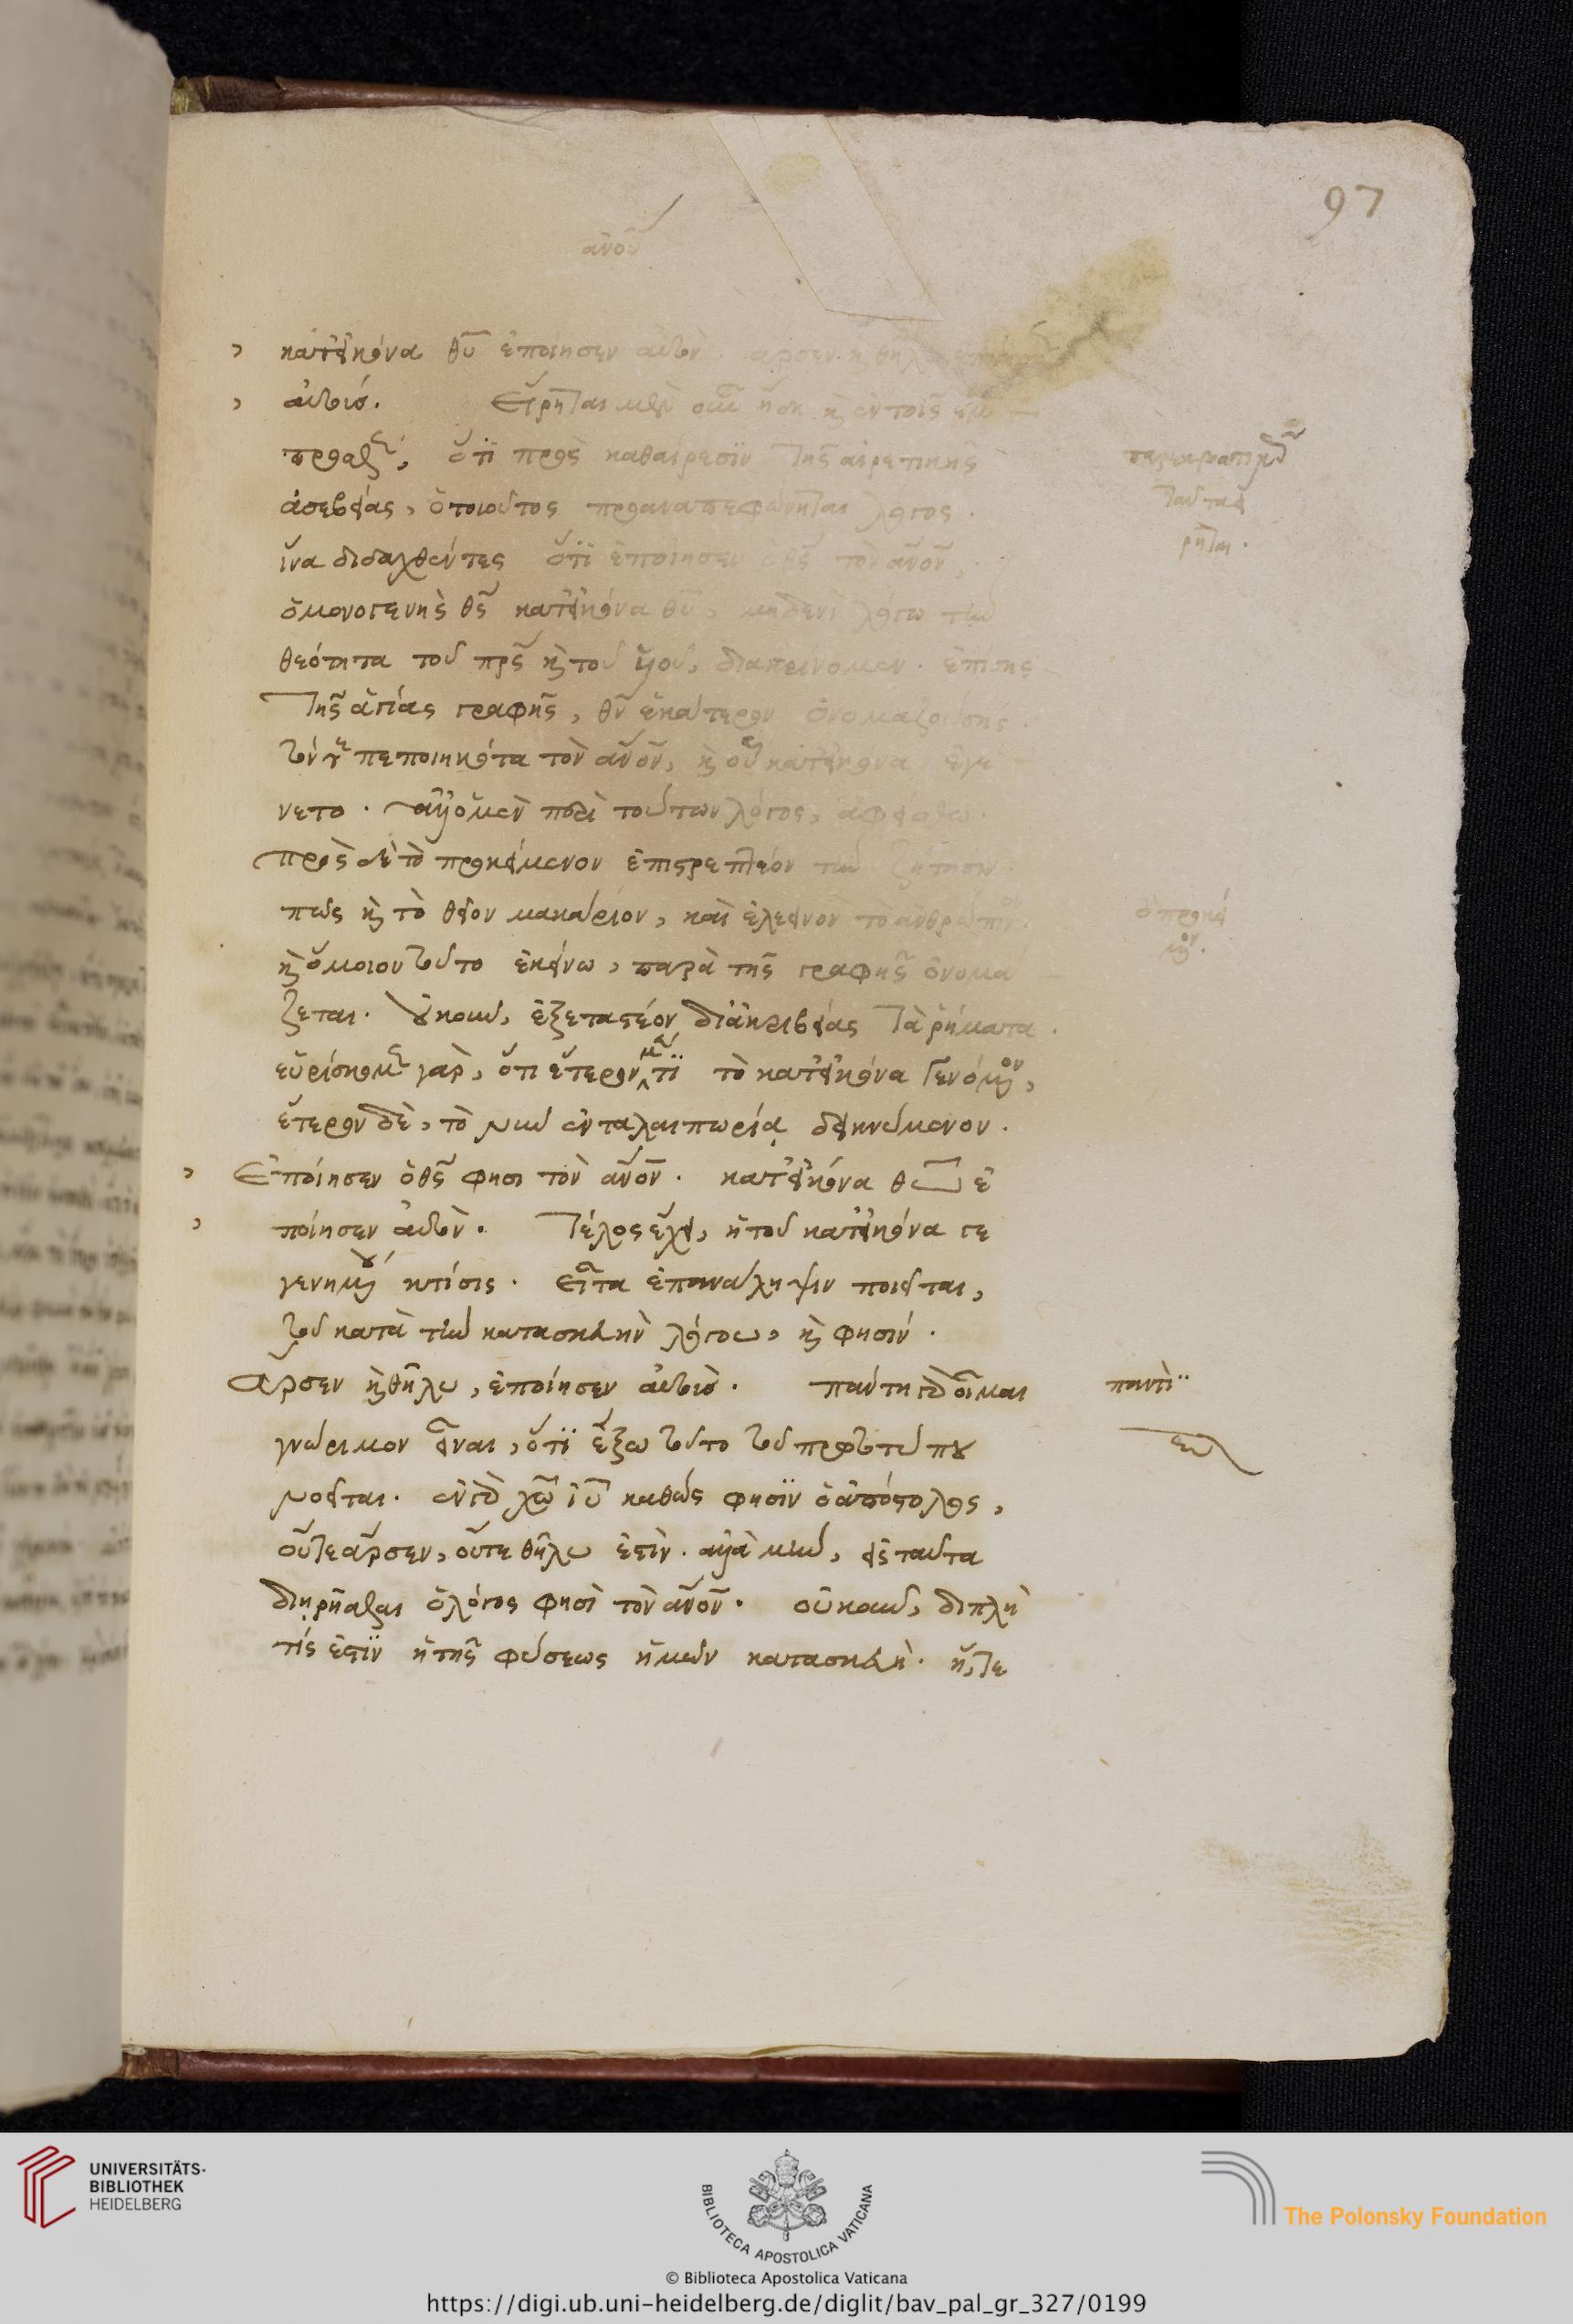 97
ἀνο͂ν
κατ' εἰκόνα θῦ ἐποίησεν αὐτὸν ἄρσεν κ̀ θῆλυ ἐποίησεν
αὐτούς. Εἴρηται μὲν οὖν ἤδη κ̀ ἐν τοῖς ἔμ
προσθεν, ὅτι πρὸς καθαίρεσιν τῆς αἱρετικῆς
ἀσεβείας, ὁ τοιοῦτος προαναπεφώνηται λόγος.
ἵνα διδαχθέντες ὅτι ἐποίησεν ὁ θς͂ τὸν ἀν͂ον͂,
ὁ μονογενὴς θς͂ κατ' εἰκόνα θῦ, μηδενὶ λόγω τὴν
θεότητα τοῦ πρς͂ κ̀ τοῦ ὑιοῦ, διακρίνομεν. ἐπίσης
τῆς ἁγίας γραφῆς, θν͂ ἑκάτερον ὀνομαζούσης.
τόν τε πεποιηκότα τὸν ἀν͂ον͂, κ̀ οὗ κατ' εἰκόνα ἐγέ
νετο. ἀλλ' ὁ μὲν περὶ τούτων λόγος, ἀφείσθω.
πρὸς δὲ τὸ προκείμενον ἐπιστρεπτέον τὴν ζήτησιν.
πῶς κ̀ τὸ θεῖον μακάριον, καὶ ἐλεεινὸν τὸ ἀνθρώπινον.
κ̀ ὅμοιον τοῦτο ἐκείνω, παρὰ τῆς γραφῆς ὀνομά
ζεται. οὐκοῦν, ἐξεταστέον δι' ἀκριβείας τὰ ῥήματα.
εὑρίσκομεν γὰρ, ὅτι ἕτερον μέν τι τὸ κατ' εἰκόνα γενόμενον,
ἕτερον δὲ, τὸ νῦν ἐν ταλαιπωρίᾳ δεικνύμενον.
Ἐποίησεν ὁ θς͂ φησι τὸν ἀν͂ον͂. κατ' εἰκόνα θῦ ἐ
ποίησεν αὐτὸν. Τέλος ἔχει, ἡ τοῦ κατ' εἰκόνα γε
γενημένου κτίσις. εἶτα ἐπανάληψιν ποιεῖται,
τοῦ κατὰ τὴν κατασκευὴν λόγου, κ̀ φησίν.
ἄρσεν κ̀ θῆλυ, ἐποίησεν αὐτούς. πάντη γὰρ οἶμαι
γνώριμον εἶναι, ὅτι ἔξω τοῦτο τοῦ πρωτοτύπου
νοεῖται. ἐν γὰρ χῶ ιῦ καθώς φησὶν ὁ ἀπόστολος,
οὔτε ἄρσεν, οὔτε θῆλυ ἐστὶν. ἀλλὰ μὴν, εἰς ταῦτα
διῃρῆσθαι ὁ λόγος φησὶ τὸν ἀν͂ον͂. οὐκοῦν, διπλῆ
τίς ἐστὶν ἡ τῆς φύσεως ἡμῶν κατασκευὴ. ἥ τε
ταῦτα εἴ
ρηται.
ὃ προκεί
μενον.
παντὶ
UNIVERSITÄTS-
BIBLIOTHEK
HEIDELBERG
BIBLIOTECA APOSTOLICA VATICANA
The Polonsky Foundation
© Biblioteca Apostolica Vaticana
https://digi.ub.uni-heidelberg.de/diglit/bav_pal_gr_327/0199